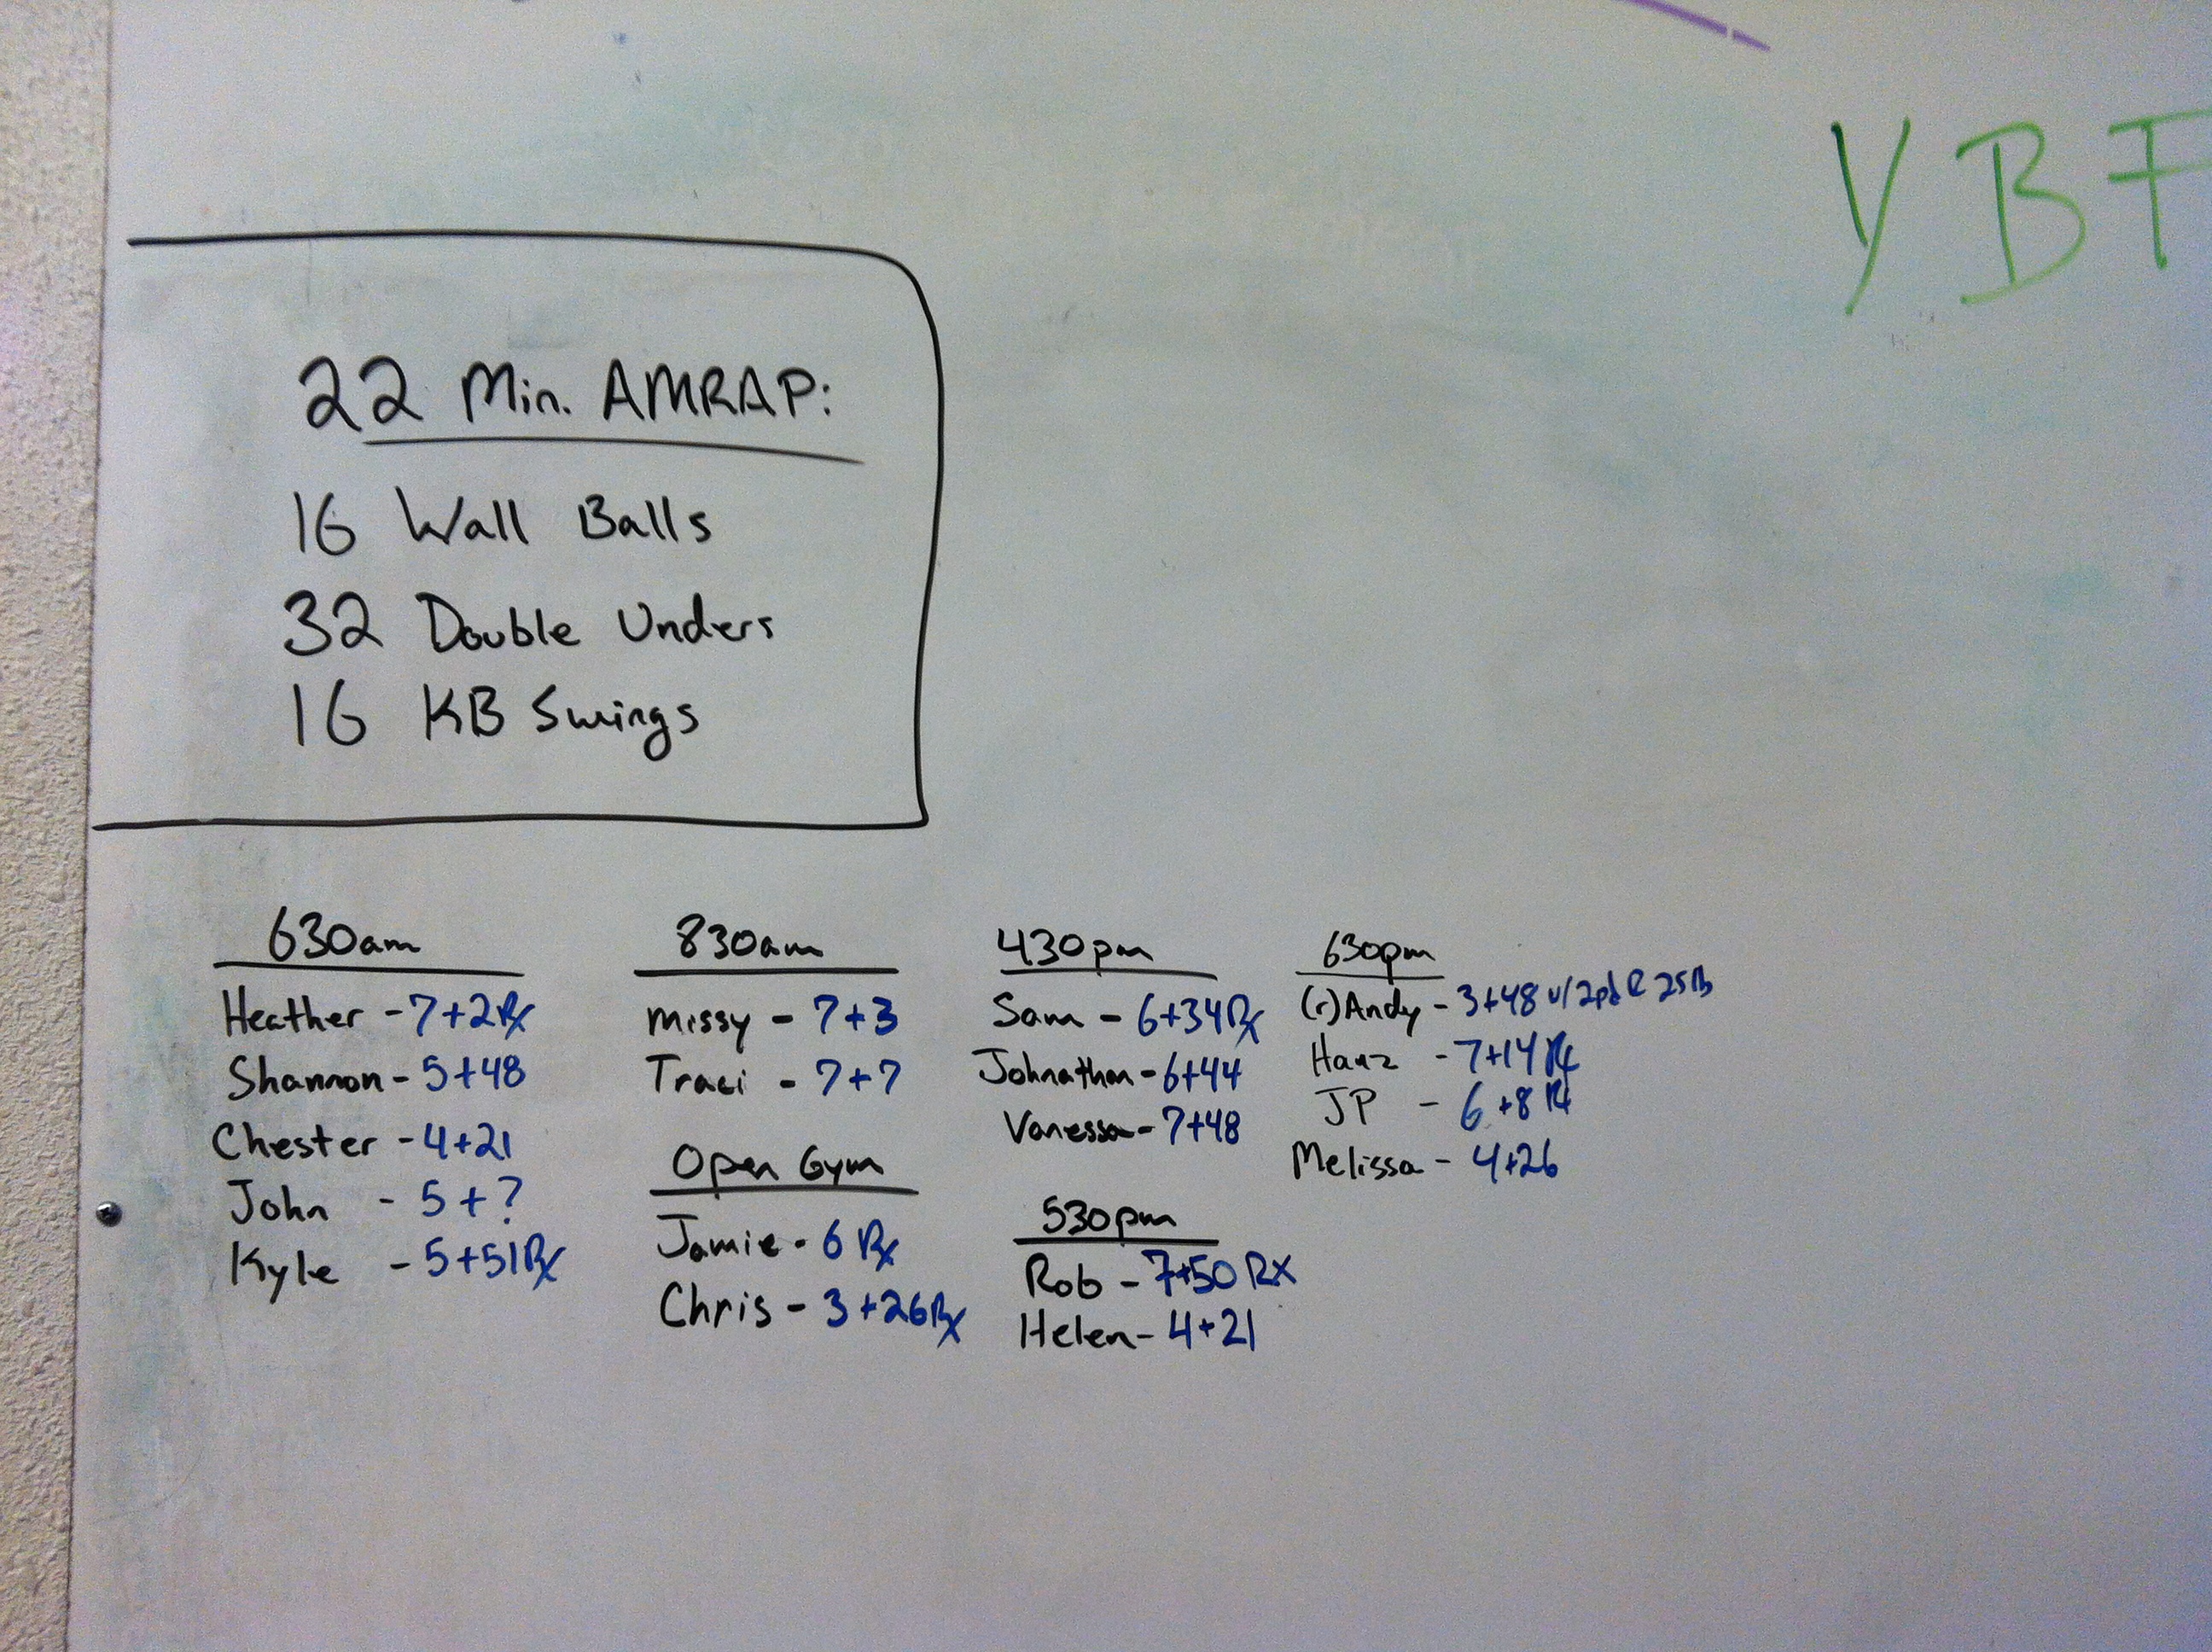 YBF
22 Min. AMRAP:
16 Wall Balls
32 Double Unders
16 KB Swings
630am
Heather - 7+2 Rx
Shannon - 5+48
Chester - 4+21
John - 5+?
Kyle - 5+51 Rx
830am
Missy - 7+3
Traci - 7+7
Open Gym
Jamie - 6 Rx
Chris - 3+26 Rx
430pm
Sam - 6+34 Rx
Johnathan - 6+44
Vanessa - 7+48
530pm
Rob - 7+50 Rx
Helen - 4+21
630pm
(r) Andy - 3+48 w/ 2pd @ 25lb
Hanz - 7+14 Rx
JP - 6+8 Rx
Melissa - 4+26